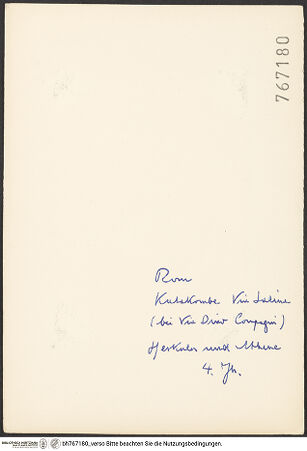 767180
Rom
Katakombe Via Latina
(bei Via Dino Compagni)
Herkules und Athene
4. Jh.
bh767180_verso Bitte beachten Sie die Nutzungsbedingungen.